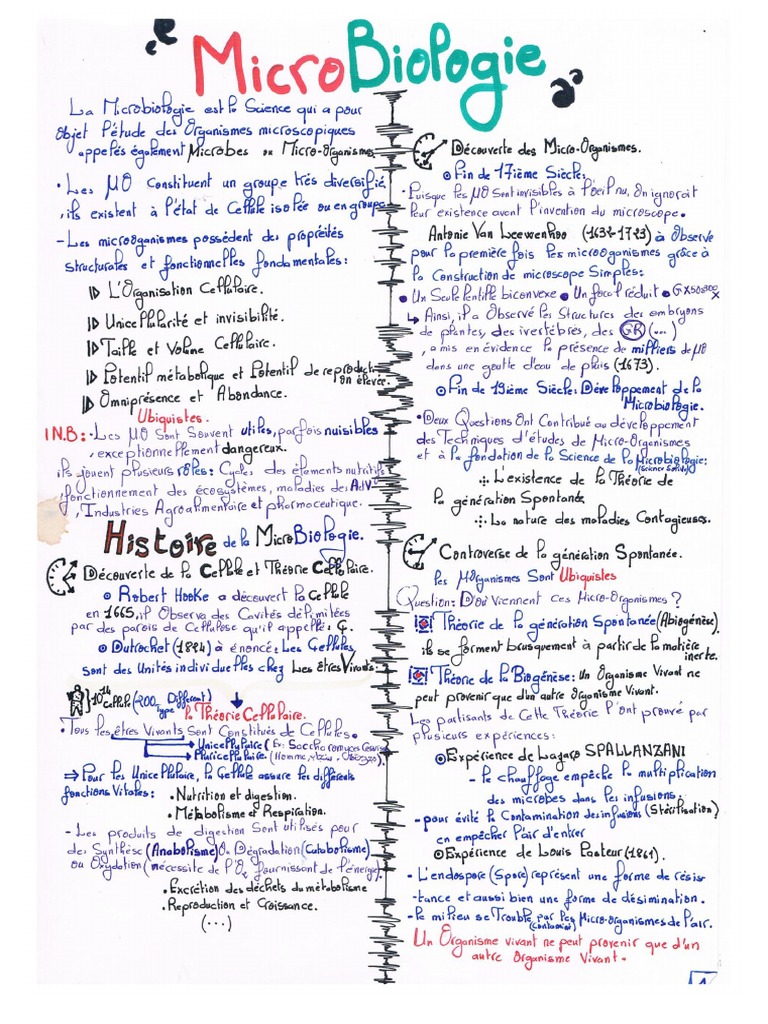 MicroBiologie
La Microbiologie est la Science qui a pour
objet l'étude des Organismes microscopiques
appelés également Microbes ou Micro-Organismes.
• Les MO Constituent un groupe trés diversifié
, ils existent à l'état de Cellule isolée ou en groupe
- Les microoganismes possédent des propriétés
structurales et fonctionnelles fondamentales:
L'Organisation Cellulaire.
Unicellularité et invisibilité.
Taille et Volume Cellulaire.
Potentiel métabolique et Potentiel de reproducti
on élevée.
Omniprésence et Abondance.
Ubiquistes.
I.N.B: • Les MO Sont Souvent utiles, parfois nuisibles
, exceptionnellement dangereux.
ils jouent plusieurs rôles: Cycles des éléments nutritifs
, fonctionnement des écosystèmes, maladies des
, Industries Agroalimentaire et pharmaceutique.
Histoire de la MicroBiologie.
Découverte de la Cellule et Théorie Cellulaire.
Robert Hooke a découvert la Cellule
en 1665, il Observa des Cavités délimitées
par des parois de Cellulose qu'il appelle: C.
Dutrochet (1824) à énoncé: Les Cellules
sont des Unités individuelles chez Les êtres Vivants.
10¹⁴ Cellule (200 Type Different)
la Théorie Cellulaire.
• Tous les êtres Vivants Sont Constitués de Cellules.
Unicellulaire (Ex: Saccharomyces
Pluricellulaire (Homme,
⇒ Pour les Unicellulaire, la Cellule assure les différents
fonctions Vitales: • Nutrition et digestion.
• Métabolisme et Respiration.
- Les produits de digestion Sont utilisés pour
des Synthèse (Anabolisme) Ou Dégradation (Catabolisme)
ou Oxydation (nécessite de l'O₂ fournissant de l'énergie).
• Excrétion des déchets du métabolisme
• Reproduction et Croissance.
(...)
Découverte des Micro-Organismes.
Fin de 17ième Siècle:
- Puisque les MO Sont invisibles à l'oeil nu, On ignorait
leur existence avant l'invention du microscope.
Antonie Van Leewenhoo (1632-1723) à Observé
pour la première fois les microoganismes grâce à
la Construction de microscope Simples:
• Un Seule lentille biconvexe • Un focal réduit • Gx50:300x
↳ Ainsi, il a Observé les Structures des embryons
de plantes, des ivertébrés, des GR (...)
, a mis en évidence la présence de milliers de MO
dans une goutte d'eau de pluis (1673).
Fin de 19ième Siècle: Développement de la
Microbiologie.
• Deux Questions Ont Contribué au développement
des Techniques d'études de Micro-Organismes
et à la fondation de la Science de la Microbiologie:
(Science Solide)
L'existence de la Théorie de
la génération Spontané
La nature des maladies Contagieuses.
Controverse de la génération Spontanée.
les MOrganismes Sont Ubiquistes
Question: D'où Viennent ces Micro-Organismes ?
Théorie de la génération Spontanée (Abiogénèse).
ils se forment brusquement à partir de la matière
inerte.
Théorie de la Biogénèse: un Organisme Vivant ne
peut provenir que d'un autre Organisme Vivant.
Les partisants de Cette Théorie l'ont prouvé par
plusieurs expériences:
Expérience de Lazaro SPALLANZANI
- le chauffage empêche la multiplication
des microbes dans les infusions.
- pour évité la Contamination des infusions (Stérilisation)
en empêcher l'air d'entrer
Expérience de Louis Pasteur (1861).
- L'endospore (Spore) représent une forme de résis
-tance et aussi bien une forme de désimination.
- le milieu se Trouble par les Micro-organismes de l'air.
(Contaminé)
Un Organisme vivant ne peut provenir que d'un
autre Organisme Vivant.
1